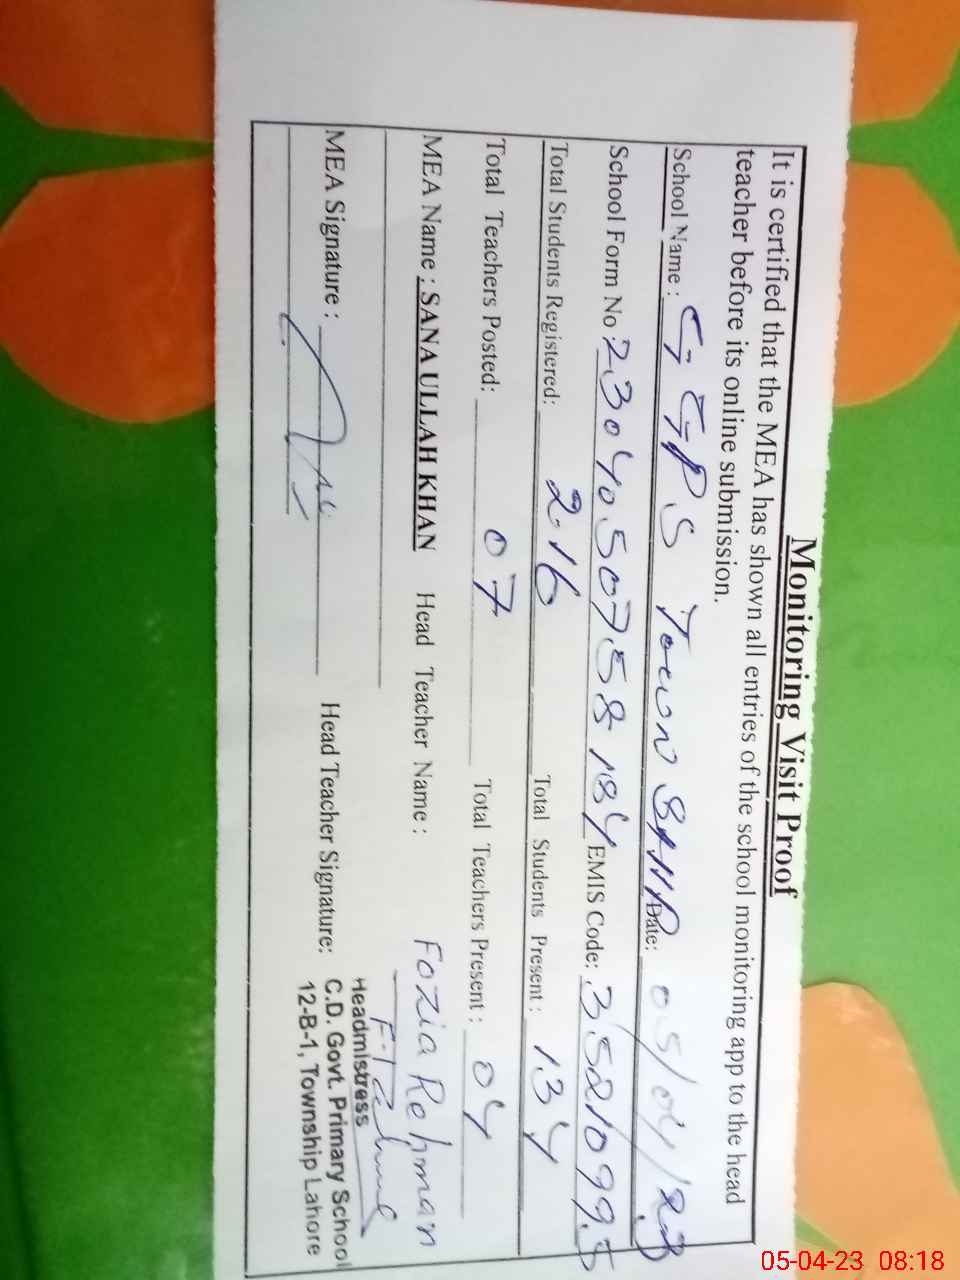 Monitoring Visit Proof
It is certified that the MEA has shown all entries of the school monitoring app to the head
teacher before its online submission.
School Name : GGPS Town SHIP Date: 05/04/23
School Form No : 2304050758184 EMIS Code: 35210995
Total Students Registered: 216 Total Students Present : 134
Total Teachers Posted: 07 Total Teachers Present : 04
MEA Name : SANA ULLAH KHAN Head Teacher Name : Fozia Rehman
MEA Signature : Head Teacher Signature:
Headmistress
C.D. Govt. Primary School
12-B-1, Township Lahore
05-04-23 08:18